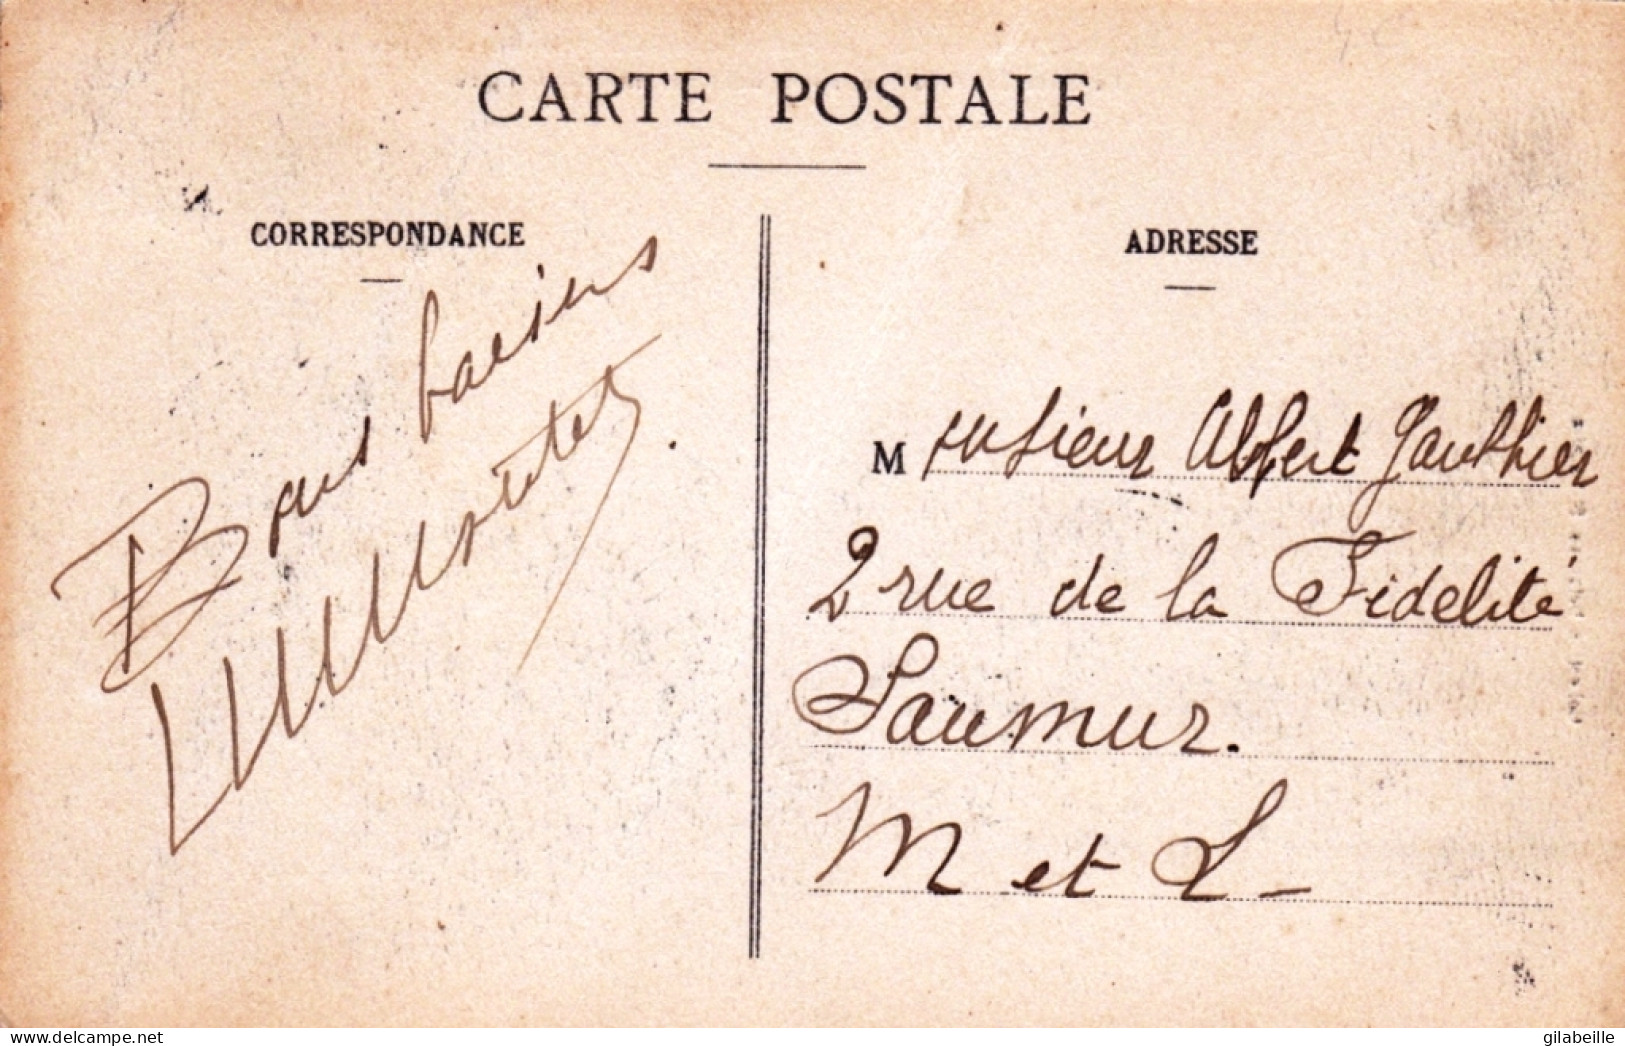 CARTE POSTALE
CORRESPONDANCE
Bons baisers
ADRESSE
Monsieur Albert Gauthier
2 rue de la Fidelité
Saumur.
M et L -
delcampe.net
gilabeille